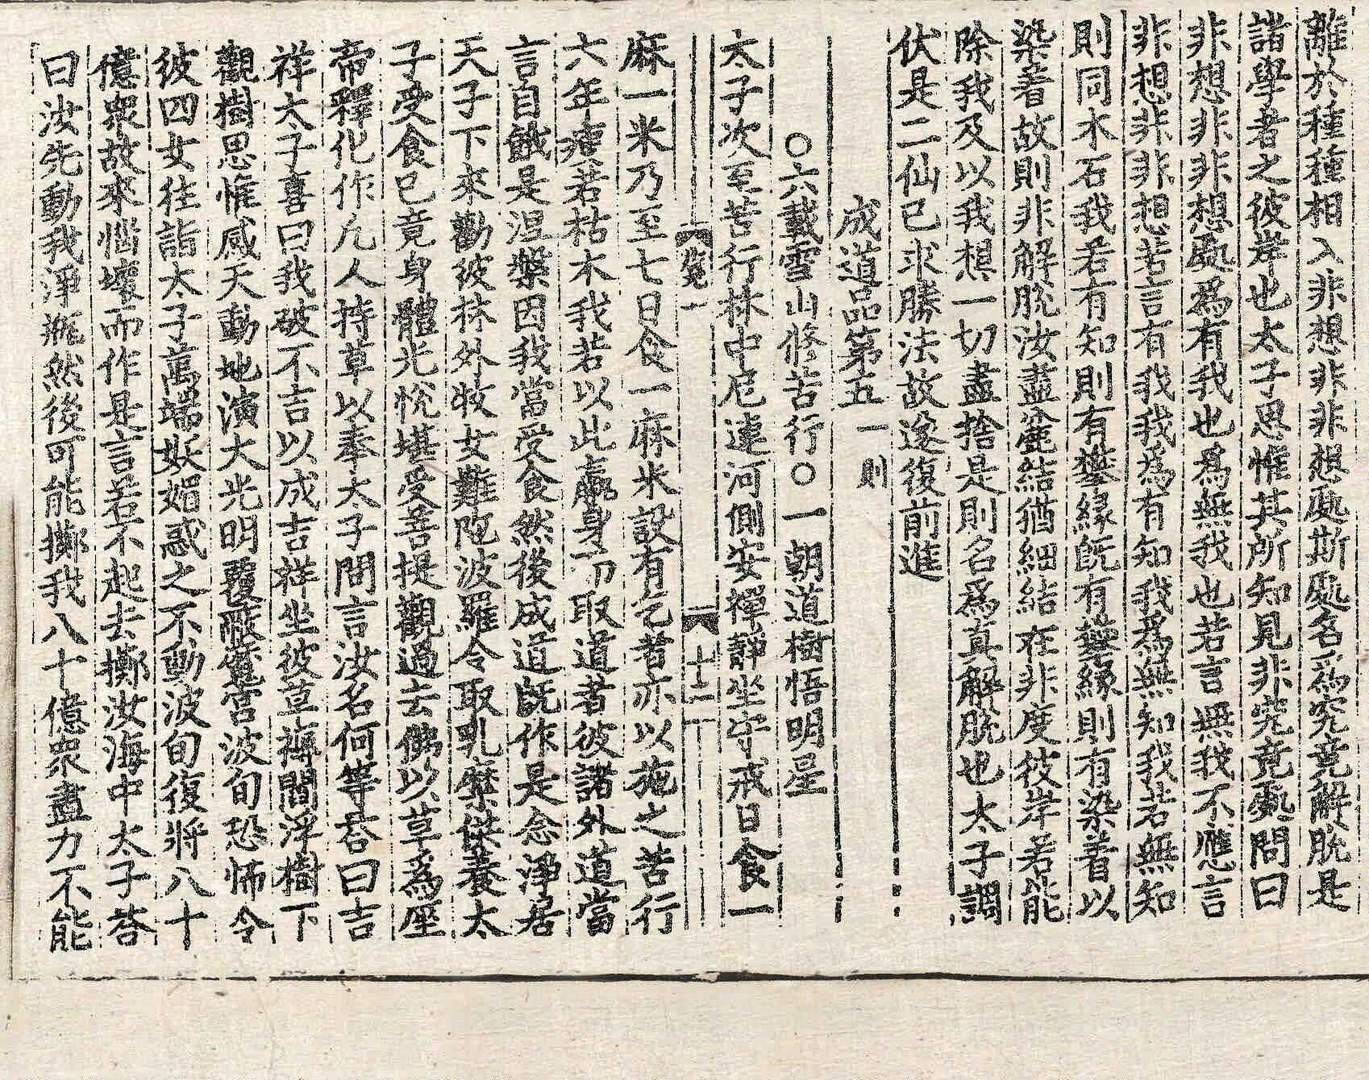 離於種種相入非想非非想處斯處名爲究竟解脫是
諸學者之彼岸也太子思惟其所知見非究竟處問曰
非想非非想處爲有我也爲無我也若言無我不應言
非想非非想若言有我我爲有知我爲無知我若無知
則同木石我若有知則有攀緣旣有攀緣則有染着以
染着故則非解脫汝盡麁結猶細結在非度彼岸若能
除我及以我想一切盡捨是則名爲眞解脫也太子調
伏是二仙已求勝法故遂復前進
成道品第五一則
○六載雪山修苦行○一朝道樹悟明星
太子次至苦行林中尼連河側安禪靜坐守戒日食一
一 十二
麻一米乃至七日食一麻米設有乞者亦以施之苦行
六年瘦若枯木我若以此羸身而取道者彼諸外道當
言自餓是涅槃因我當受食然後成道旣作是念淨居
天子下來勸彼林外牧女難陁波羅令取乳麋供養太
子受食已竟身體光悅堪受菩提觀過去佛以草爲座
帝釋化作凡人持草以奉太子問言汝名何等荅曰吉
祥太子喜曰我破不吉以成吉祥坐彼草褥閻浮樹下
觀樹思惟感天動地演大光明覆蔽魔宮波旬恐怖令
彼四女往詣太子萬端妖媚惑之不動波旬復將八十
億衆故來惱壞而作是言若不起去擲汝海中太子荅
曰汝先動我淨甁然後可能擲我八十億衆盡力不能